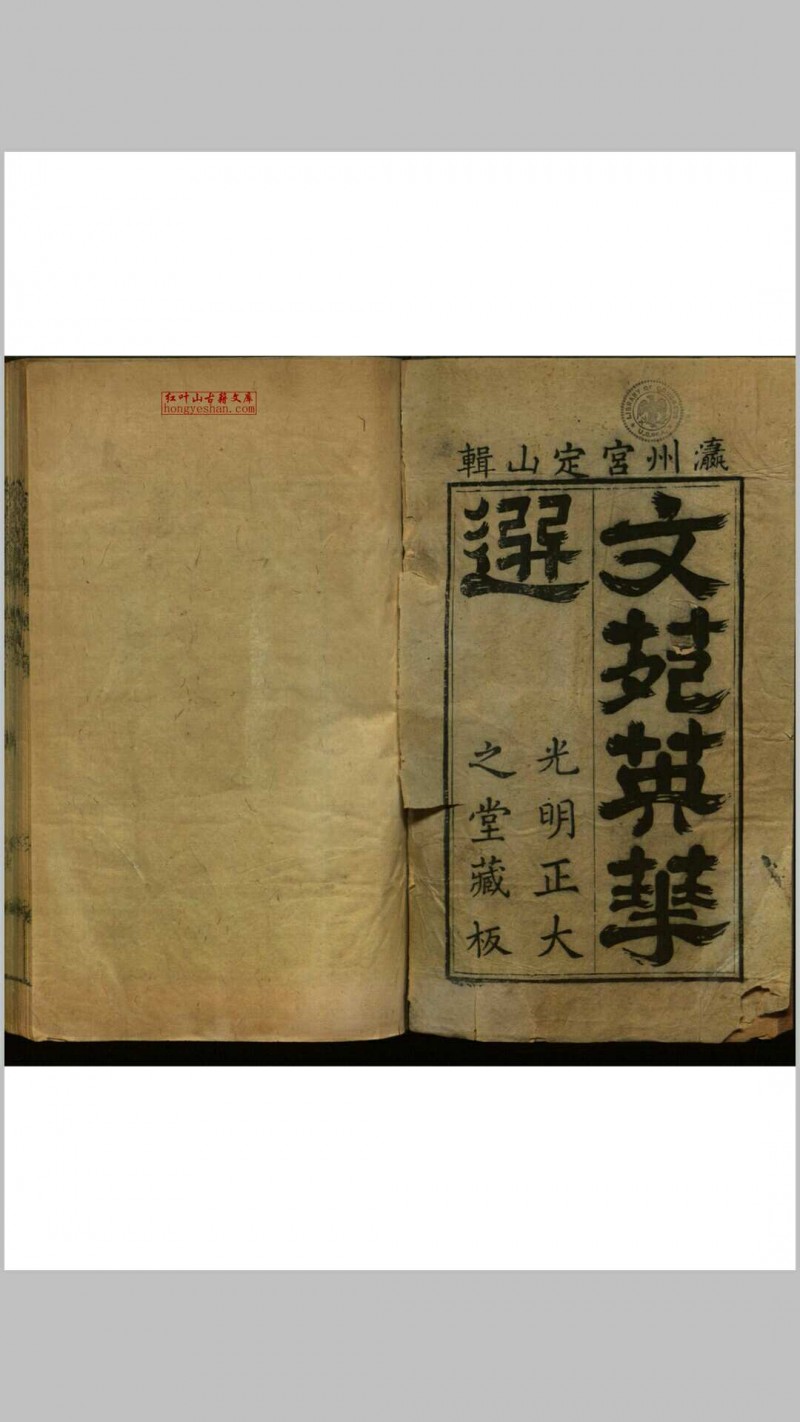 红叶山古籍文库
hongyeshan.com
LIBRARY OF CONGRESS
瀛州宮定山輯
文苑英華
選
光明正大
之堂藏板